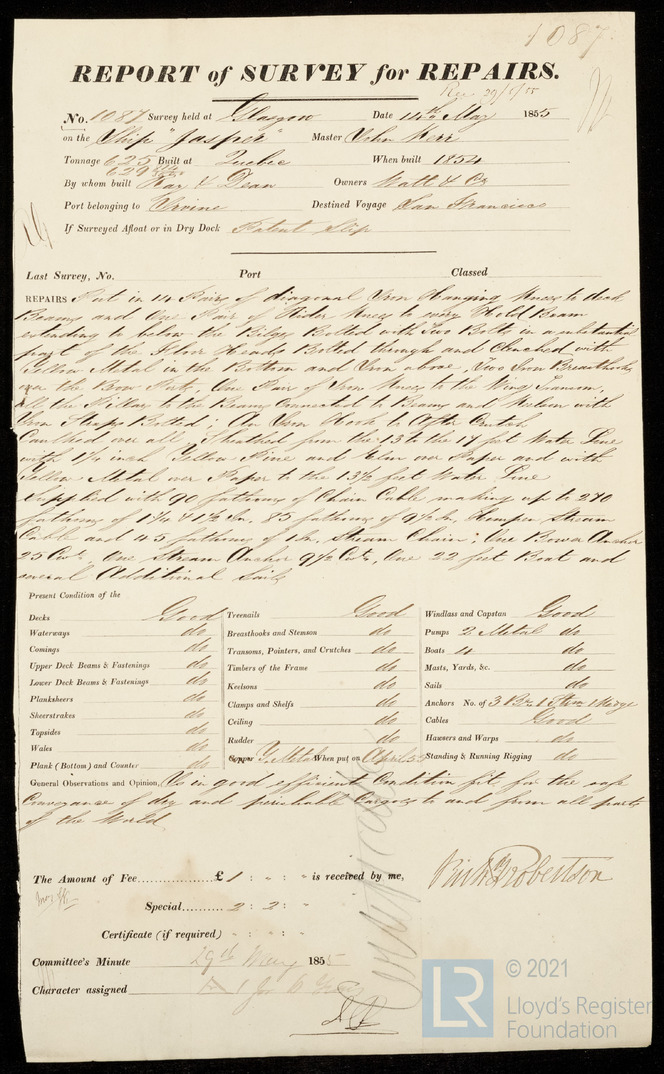 1087
REPORT of SURVEY for REPAIRS.
Rec 29/5/55
No. 1087 Survey held at Glasgow Date 14th May 1855
on the Ship "Jasper" Master John Kerr
Tonnage 625 Built at Quebec When built 1854
629
By whom built Ray & Dean Owners Watt & Co
Port belonging to Irvine Destined Voyage San Francisco
If Surveyed Afloat or in Dry Dock Patent Slip
Last Survey, No. Port Classed
REPAIRS Put in 14 Pairs of diagonal Iron Hanging Knees to deck
Beams and One Pair of Rider Knees to every Hold Beam
extending to below the Bilges Bolted with Two Bolts in a substantial
part of the Floor Heads Bolted through and Clenched with
Yellow Metal in the Bottom and Iron above, Two Iron Breasthooks
over the Bow Ports, One Pair of Iron Knees to the Wing Transom,
All the Pillars to the Beams Connected to Beams and Keelson with
Iron Straps Bolted; An Iron Hook to After Crutch
Caulked over all, Sheathed from the 13 to the 17 feet Water Line
with 1¼ inch Yellow Pine and Elm over Paper and with
Yellow Metal over Paper to the 13½ feet Water Line
Supplied with 90 fathoms of Chain Cable making up to 270
fathoms of 1 7/16 & 1½ In, 85 fathoms of 9½ In, Hemper Stream
Cable and 45 fathoms of 1 In. Stream Chain; One Bower Anchor
25 Cwt, One Stream Anchor 9½ Cwt, One 22 feet Boat and
several Additional Sails
Present Condition of the
Decks Good
Waterways do
Comings do
Upper Deck Beams & Fastenings do
Lower Deck Beams & Fastenings do
Planksheers do
Sheerstrakes do
Topsides do
Wales do
Plank (Bottom) and Counter do
Treenails Good
Breasthooks and Stemson do
Transoms, Pointers, and Crutches do
Timbers of the Frame do
Keelsons do
Clamps and Shelfs do
Ceiling do
Rudder do
Copper Y. Metal When put on April 55
Windlass and Capstan Good
Pumps 2 Metal do
Boats 4 do
Masts, Yards, &c. do
Sails do
Anchors No. of 3 Br. 1 Strm 1 Kedge
Cables Good
Hawsers and Warps do
Standing & Running Rigging do
General Observations and Opinion, Is in good efficient Condition fit for the safe
Conveyance of dry and perishable Cargoes to and from all parts
of the World
The Amount of Fee £ 1 : " : " is received by me,
Special 2 : 2 : "
Certificate (if required) " : " : "
Committee's Minute 29th May 1855
Character assigned A 1 for 6 Years
© 2021
LR
Lloyd's Register
Foundation